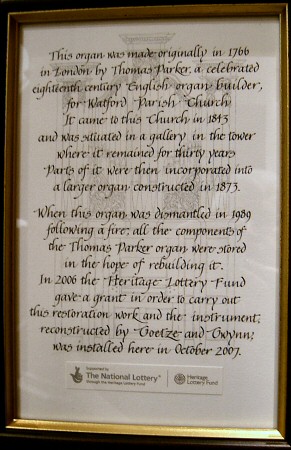 This organ was made originally in 1766
in London by Thomas Parker, a celebrated
eighteenth century English organ builder,
for Watford Parish Church
It came to this Church in 1843
and was situated in a gallery in the tower
where it remained for thirty years
Parts of it were then incorporated into
a larger organ constructed in 1873.
When this organ was dismantled in 1989
following a fire, all the components of
the Thomas Parker organ were stored
in the hope of rebuilding it.
In 2006 the Heritage Lottery Fund
gave a grant in order to carry out
this restoration work and the instrument,
reconstructed by Goetze and Gwynn,
was installed here in October 2007.
Supported by
The National Lottery
through the Heritage Lottery Fund
Heritage
Lottery Fund